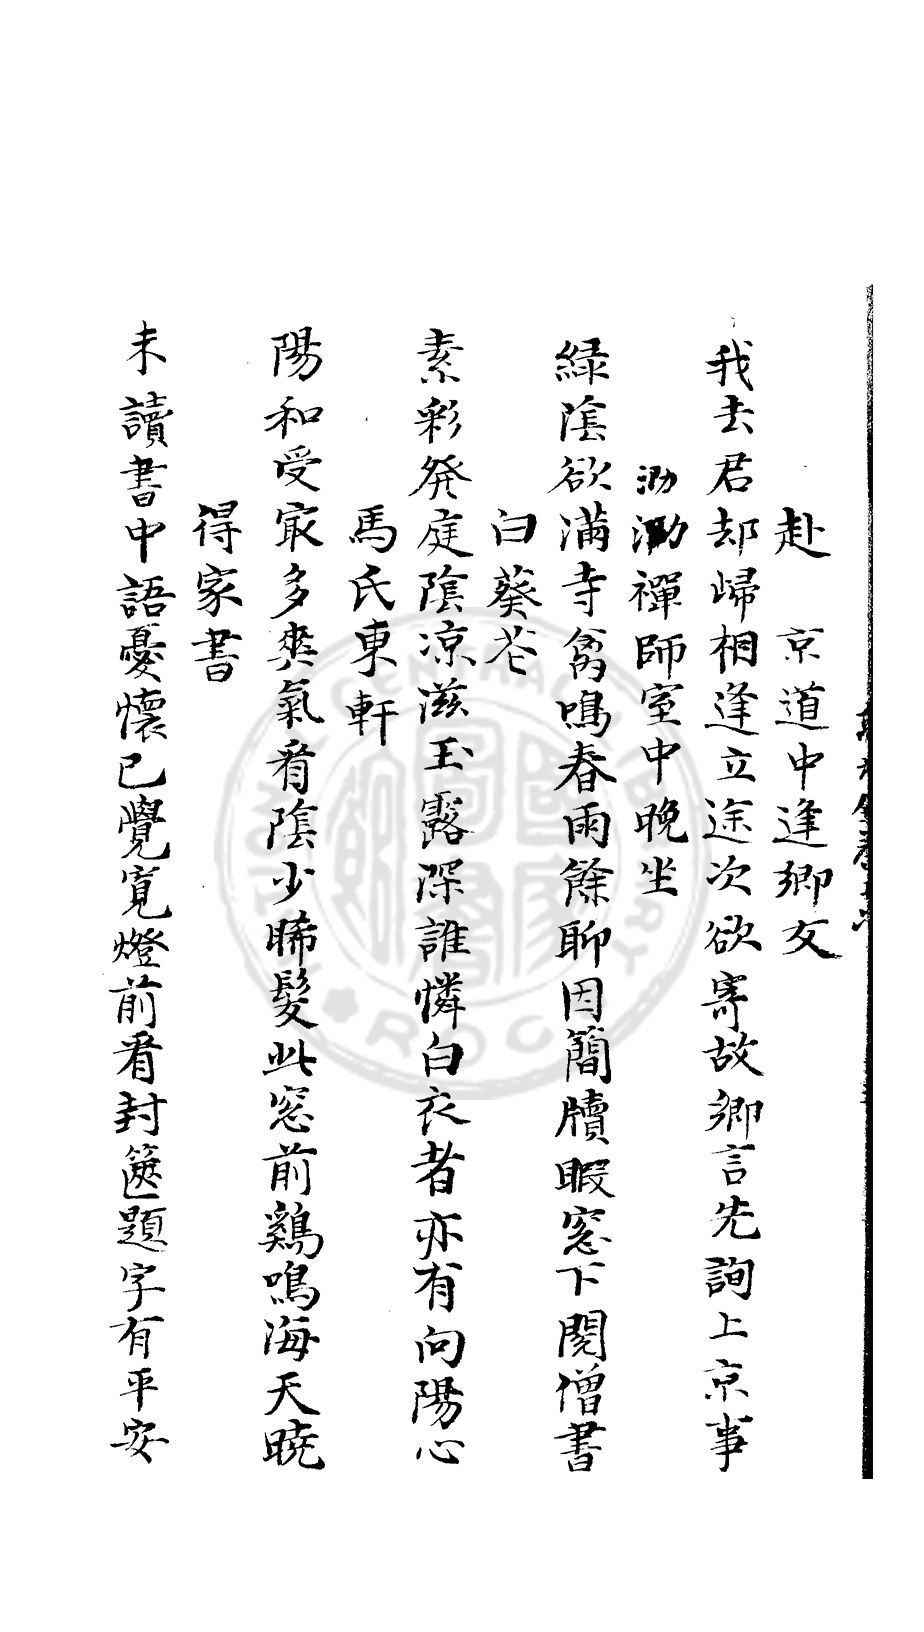 赴　京道中逢鄉友
我去君却歸相逢立途次欲寄故鄉言先詢上京事
泐泐禪師室中晚坐
緑陰欲滿寺禽鳴春雨餘聊因簡牘暇窓下閱僧書
白葵花
素彩發庭陰凉滋玉露深誰憐白衣者亦有向陽心
馬氏東軒
陽和受冣多爽氣看陰少晞髮此窓前鷄鳴海天曉
得家書
未讀書中語憂懷已覺寬燈前看封篋題字有平安
NATIONAL CENTRAL LIBRARY R.O.C.
國家圖書館